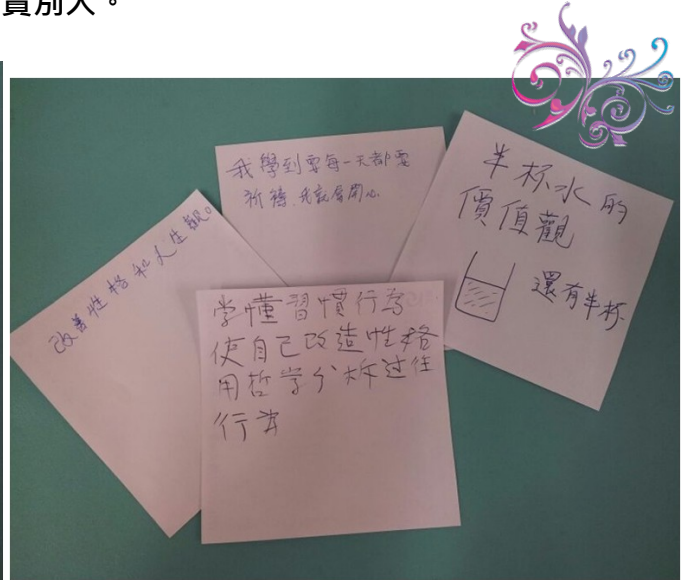 責別人。
我學到要每一天都要
祈禱,我就會開心
半杯水的
價值觀
還有半杯
改善性格和人生觀。
学懂習慣行為
使自己改造性格
用哲学分析过往
行為